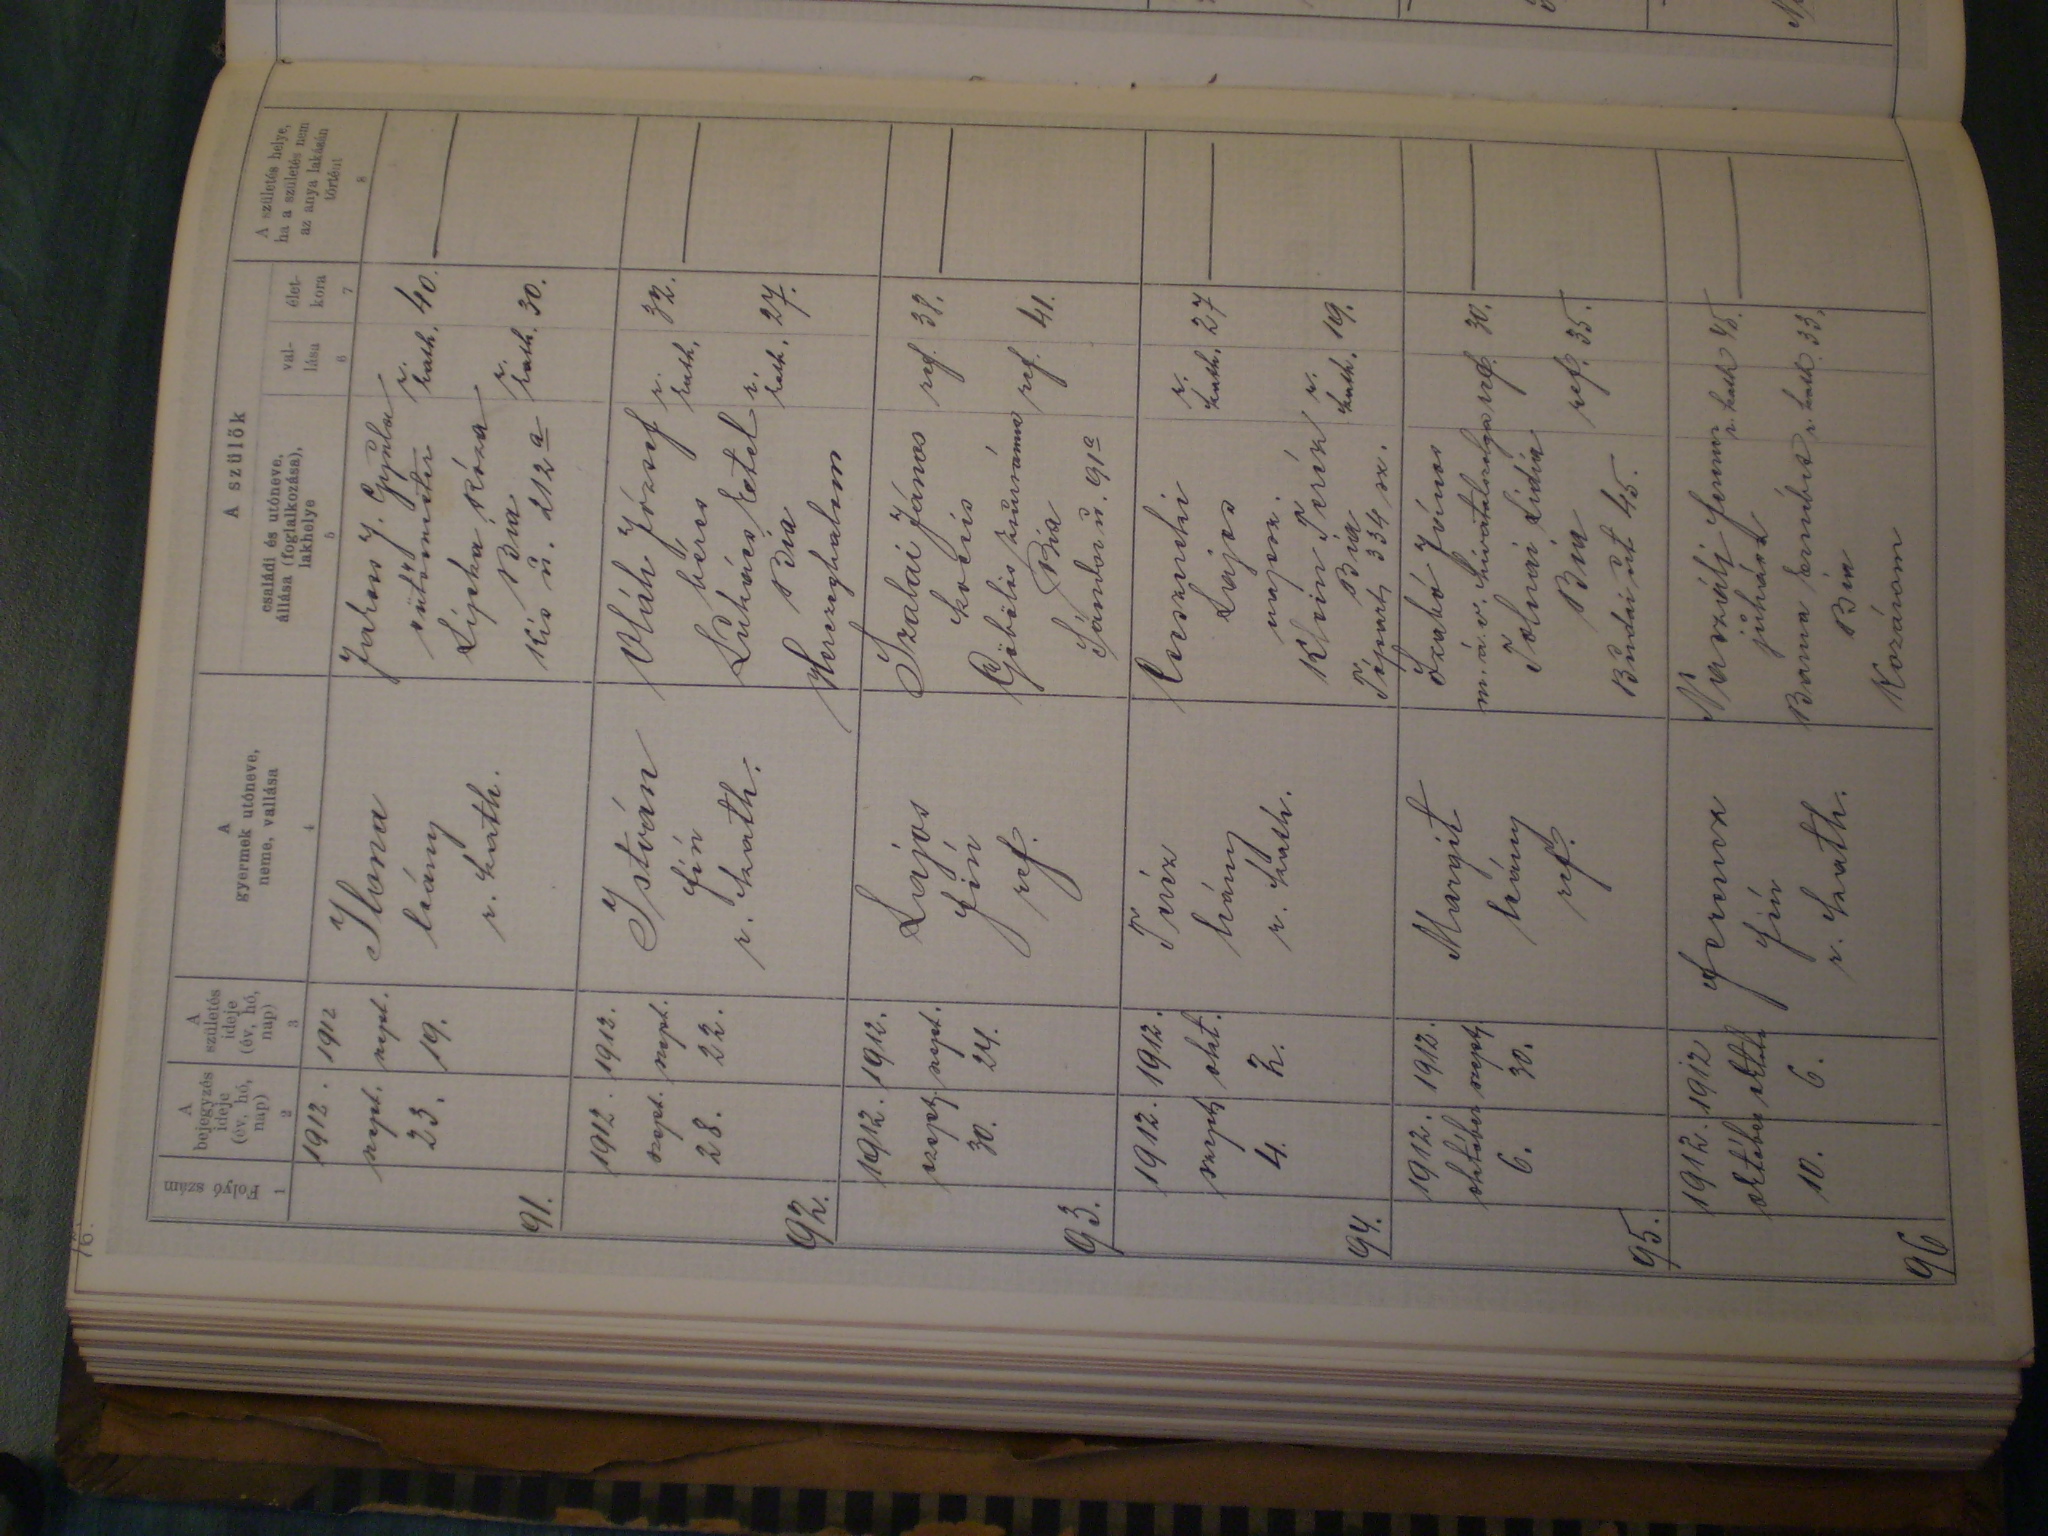 A szülők
Folyó szám
A
bejegyzés
ideje
(év, hó,
nap)
A
születés
ideje
(év, hó,
nap)
A
gyermek utóneve,
neme, vallása
családi és utóneve,
állása (foglalkozása),
lakhelye
val-
lása
élet-
kora
A születés helye,
ha a születés nem
az anya lakásán
történt
1
2
3
4
5
6
7
8
91.
1912.
szept.
23.
1912
szept.
19.
Ilona
leány
r. kath.
Gyula
r.
kath. 40.
Lipka Róza
r.
kath. 30.
Bia
Kis u. 212 a
92.
1912.
szept.
28.
1912.
szept.
22.
István
fiú
r. kath.
Oláh József
r.
kath. 32.
béres
Lukács Etel
r.
kath. 27.
Bia
Herczeghalom
93.
1912.
szept.
30.
1912.
szept.
24.
Lajos
fiú
ref.
Szalai János
ref. 38.
kocsis
Göbölös Zsuzsánna
ref. 41.
Bia
Sándor u. 91 a
94.
1912.
szept
4.
1912.
okt.
2.
Teréz
leány
r. kath.
Lajos
r.
kath. 27
Klein Teréz
r.
kath. 19.
Bia
334 sz.
95.
1912.
október
6.
1912.
szept.
30.
Margit
leány
ref.
Szabó János
ref. 30.
m. á. v. hivatalszolga
Tolnai Lidia
ref. 35.
Bia
Budai út 45.
96
1912.
október
10.
1912
október
6.
Ferencz
fiú
r. kath.
Ferencz
r. kath 45.
juhász
Borbála
r. kath. 33.
Bia